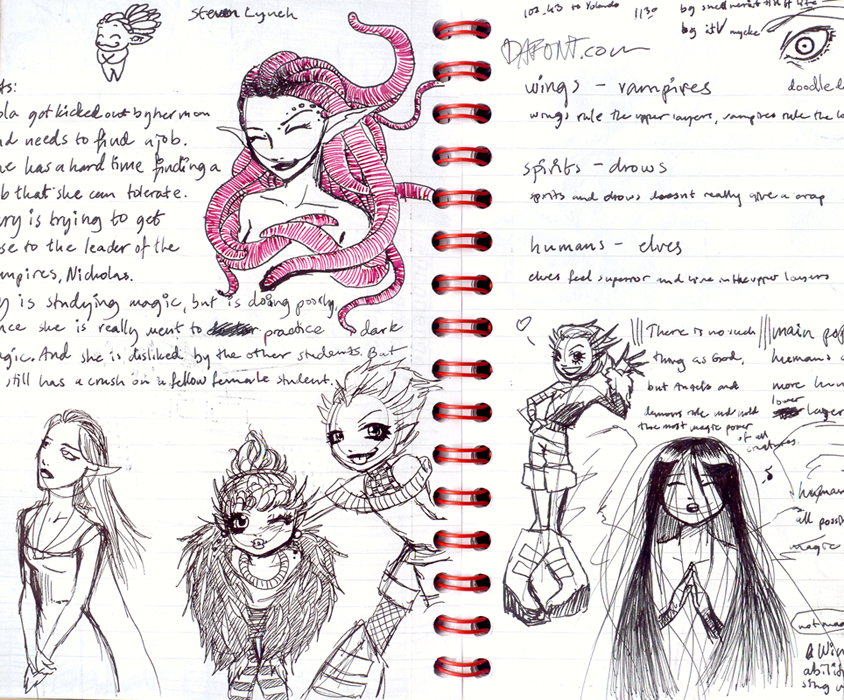 Steven Lynch
ts:
ola got kicked out by her mom
nd needs to find a job.
e has a hard time finding a
b that she can tolerate.
ry is trying to get
se to the leader of the
mpires, Nicholas.
y is studying magic, but is doing poorly,
nce she is really ment to practice dark
agic. And she is disliked by the other students. But
still has a crush on a fellow female student.
102.43 to Yolanda 1130
DAFONT.com
wings - vampires
wings rule the upper layers, vampires rule the lo
doodle
spirits - drows
spirits and drows doesnt really give a crap
humans - elves
elves feel superior and live in the upper layers
There is no such
thing as God,
but Angels and
demons rule and hold
the most magic power
of all
creatures.
main pop
humans
more hum
lower
layer
human
all possi
magic
not mag
a win
abiliti
sing